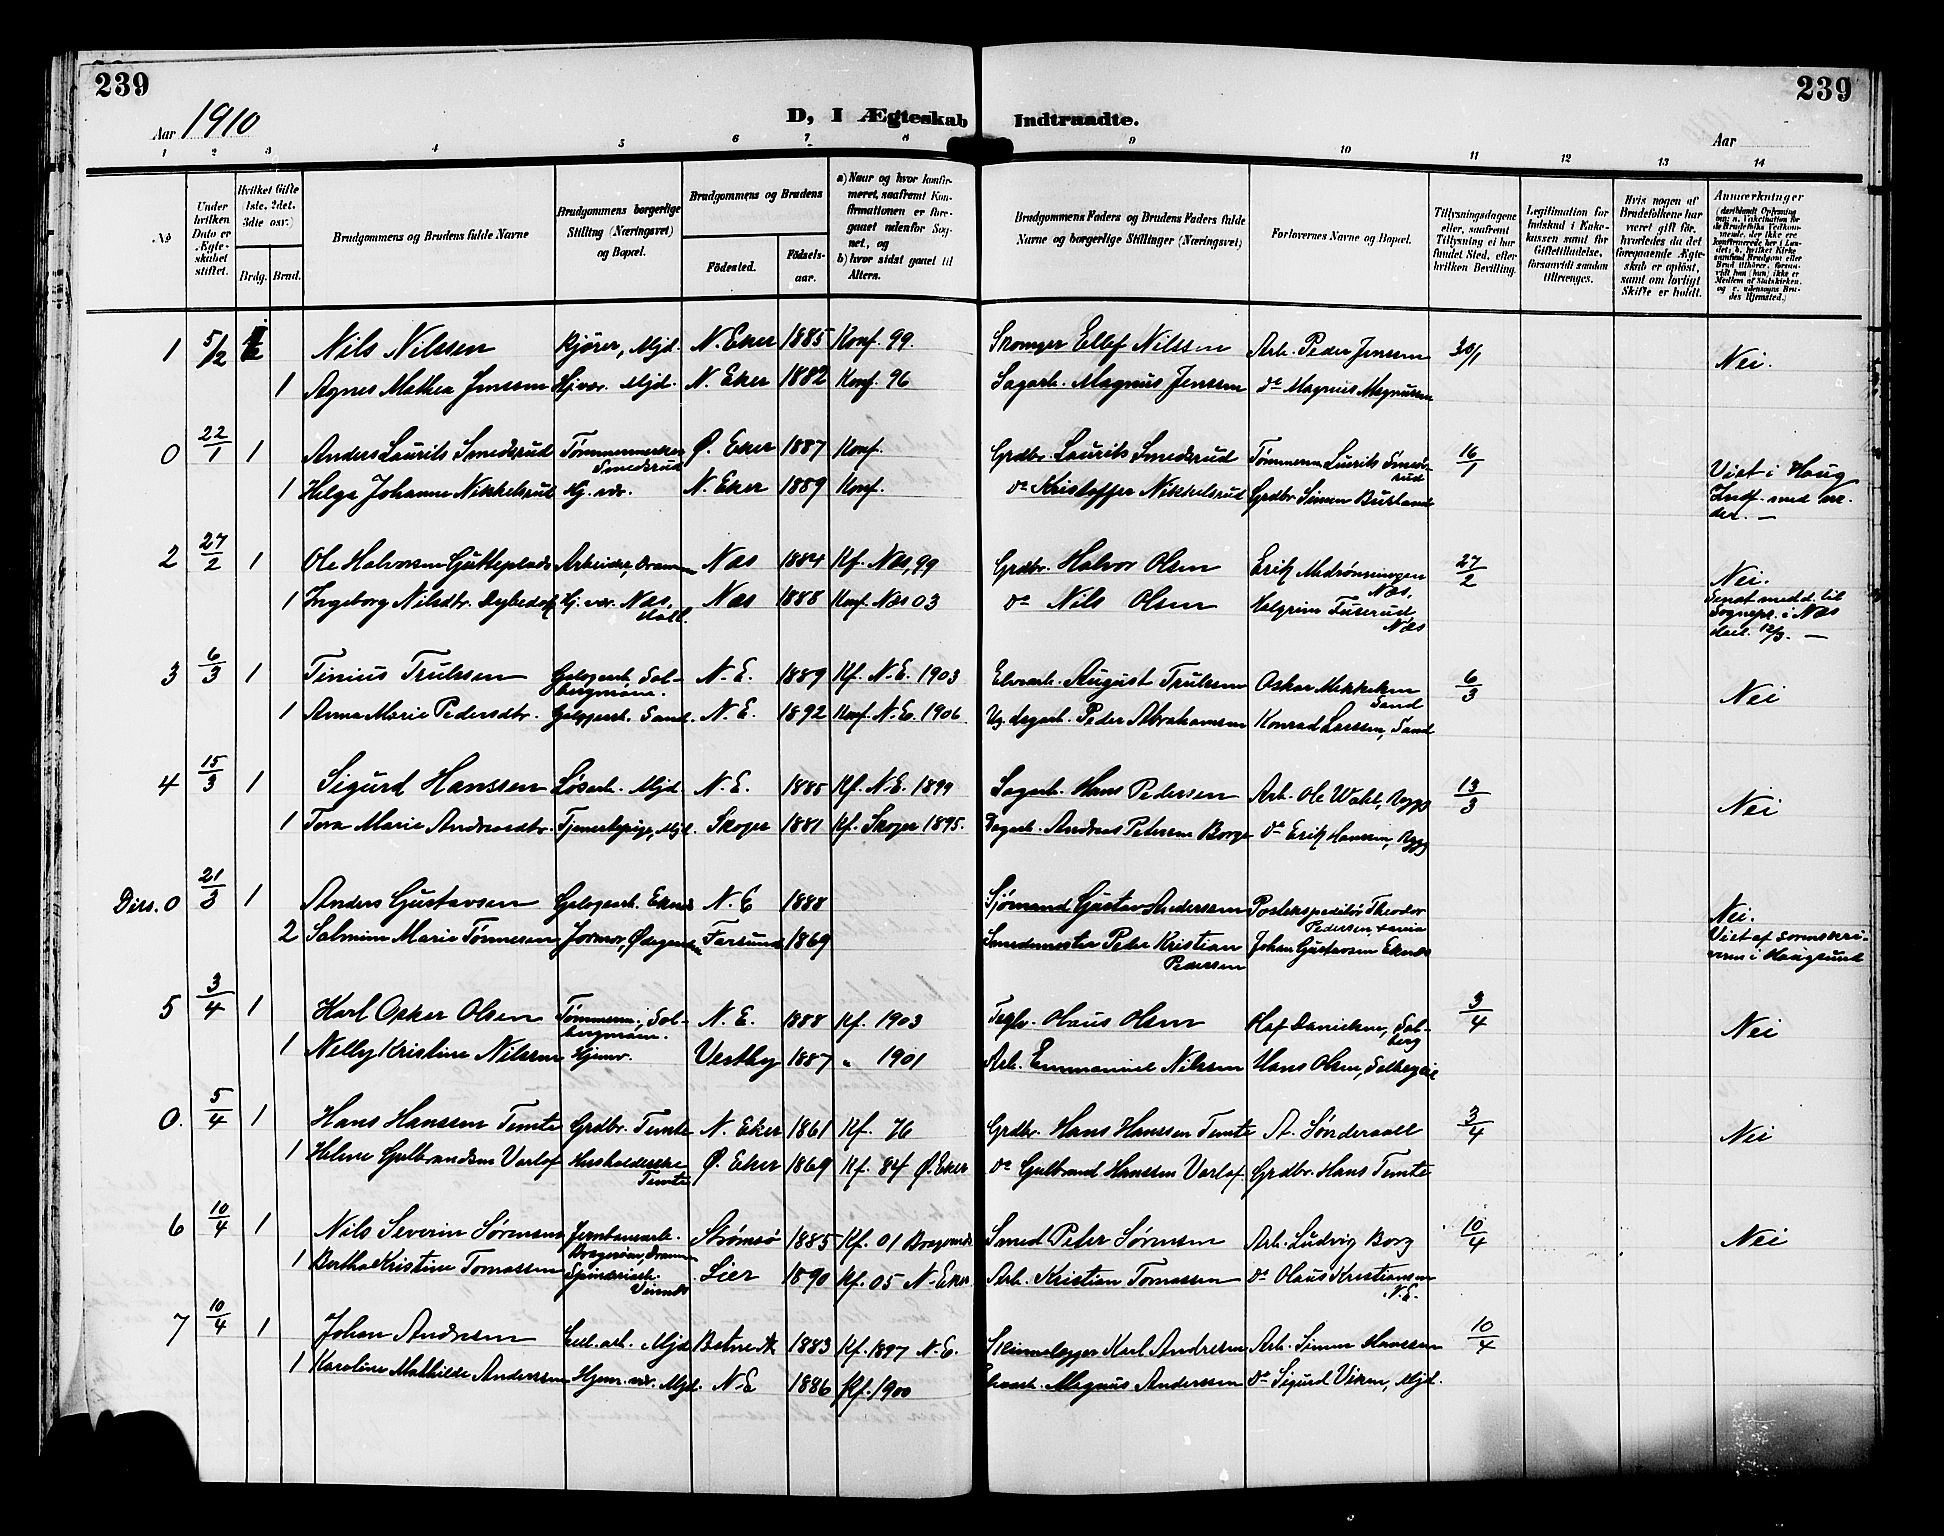 239
239
Aar 1910
D, I Ægteskab Indtraadte.
Aar
1 2 3 4 5 6 7 8 9 10 11 12 13 14
No
Under hvilken Dato er Ægteskabet stiftet.
Hvilket Gifte (1ste, 2det, 3die osv.)
Brdg. Brud.
Brudgommens og Brudens fulde Navne
Brudgommens borgerlige Stilling (Næringsvei) og Bopæl.
Brudgommens og Brudens
Fødested.
Fødselsaar.
a) Naar og hvor konfirmeret, saafremt Konfirmationen er foregaaet udenfor Sognet, og
b) hvor sidst gaaet til Alters.
Brudgommens Faders og Brudens Faders fulde Navne og borgerlige Stillinger (Næringsvei)
Forlovernes Navne og Bopæl.
Tillysningsdagene eller, saafremt Tillysning ei har fundet Sted, efter hvilken Bevilling.
Legitimation for Indskud i Enkekassen samt for Giftetilladelse, forsaavidt saadan tiltrænges.
Hvis nogen af Brudefolkene har været gift før, hvorledes da det foregaaende Ægteskab er opløst, samt om lovligt Skifte er holdt.
Anmærkninger
1 5/2 Nils Nilssen Kjører, Mjd. N. Eker 1885 Konf. 99. Ellef Nilssen Arb. Peder Jenssen 30/1 Nei.
1 Agnes Mathea Jenssen Hj.vær. Mjd. N. Eker 1882 Konf. 96 Sagarb. Magnus Jenssen do Magnus Magnussen
0 22/1 1 Anders Laurits Smedsrud Smedsrud Ø. Eker 1887 Konf. Grdbr. Laurits Smedsrud Tømmerm. Smedsrud 16/1
1 Helga Johanne Nikkelsrud Hj. vær. N. Eker 1889 Konf. do Kristoffer Nikkelsrud Grdbr. Simen Viet i Haug
2 27/2 1 Ole Halvorsen Arbeider, Dramen Næs 1884 Kf. Næs, 99 Grdbr. Halvor Olsen Erik Næs, 27/2 Nei.
1 Ingeborg Nilsdtr. Hj. vær. Næs, Næs 1888 Konf. Næs 03 do Nils Olsen Næs Sendt medd. til Sognepr. i Næs 12/3. —
3 6/3 1 Tinius Trulssen Solbergmoen. N. E. 1889 Kf. N. E. 1903 August Trulssen Oskar Mikkelsen Sand 6/3 Nei
1 Anna Marie Pedersdtr. Sand N. E. 1892 Konf. N. E. 1906 Peder Abrahamsen Konrad Larssen, Sand
4 15/3 1 Sigurd Hanssen Løsarb. Mjd N. E. 1885 Kf. N. E. 1899 Sagarb. Hans Pedersen Arb. Ole Wahl, 13/3 Nei
1 Tora Marie Andreasdtr. Tjenestepige, Mjd. Skoger 1881 Kf. Skoger 1895. Dagarb. Andreas Petersen Borge do Erik Hanssen,
Diss. 0 21/3 1 Anders Gustavsen N. E 1888 Sjømand Gustav Anderssen Postekspeditør Theodor Pedersen, Nei.
2 Marie Tønnesen Jormor, Farsund 1869 Smedmester Peder Kristian Pedersen Johan Gustavsen Viet af Sorenskriveren i Hougsund
5 3/4 1 Karl Oskar Olsen Tømmerm., Solbergmoen. N. E. 1888 Kf. 1903 Olaus Olsen Olaf Danielsen, Solberg 3/4 Nei
1 Nelly Kristine Nilssen Hjemv. Vestby 1887 " 1901 Arb. Emmanuel Nilssen Hans Olsen,
0. 5/4 1 Hans Hanssen Temte Grdbr. Temte N. Eker 1861 Kf. 76 Grdbr. Hans Hanssen Temte A. 3/4 Nei
1 Helene Gulbrandsen Varlo Husholderske Temte Ø. Eker 1869 Kf. 84 Ø. Eker do Gulbrand Hanssen Varlo Grdbr. Hans Temte
6 10/4 1 Nils Severin Sørensen Jernbanearb. Strømsø 1885 Kf. 01 Bragernæs Smed Peter Sørensen Arb. Ludvig Borg 10/4 Nei
1 Bertha Kristine Tomassen Spinneriarb. Lier 1890 Kf. 05 N. Eker Arb. Kristian Tomassen do Olaus Kristiansen N. E.
7 10/4 1 Johan Andresen Cell. arb. Mjd 1883 Kf. 1897 N. E. Karl Andresen Arb. Simen Hanssen 10/4
1 Karoline Mathilde Anderssen Hjem. vær. Mjd. N. E 1886 Kf. 1900 Magnus Anderssen do Sigurd Viken, Mjd.